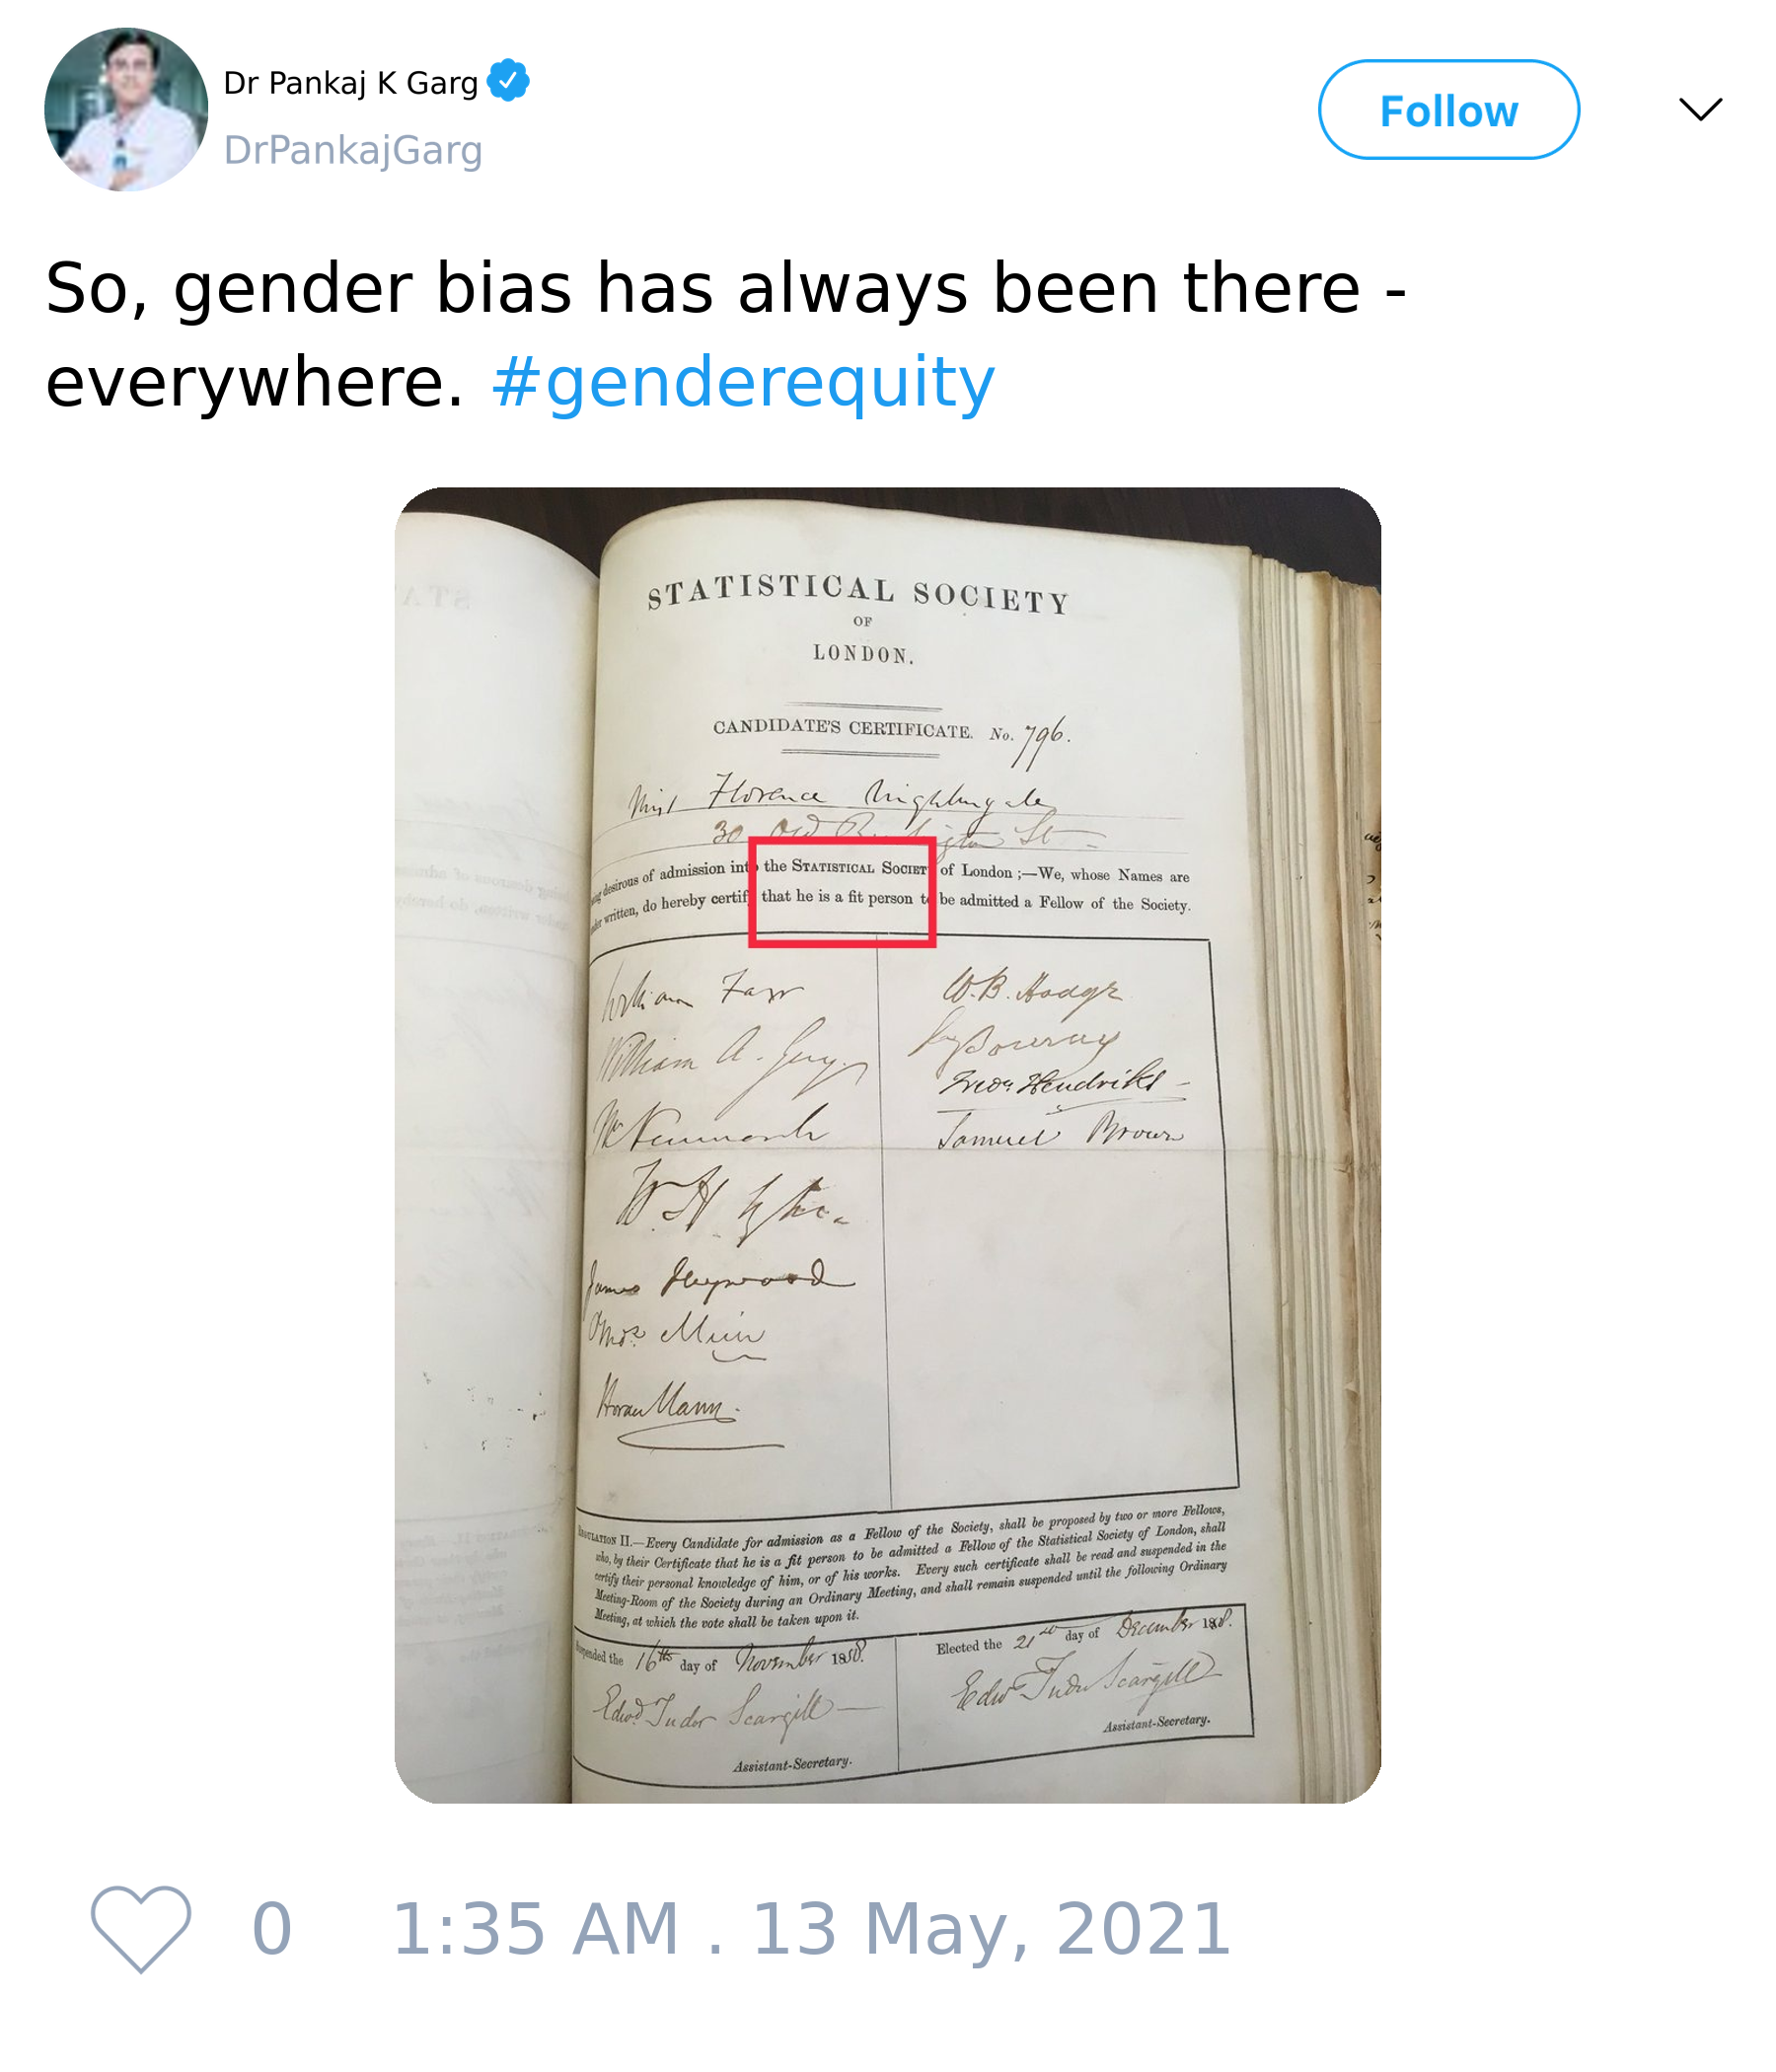 Dr Pankaj K Garg
DrPankajGarg
Follow
So, gender bias has always been there -
everywhere. #genderequity
STATISTICAL SOCIETY
OF
LONDON.
CANDIDATE'S CERTIFICATE. No. 796.
Miss Florence Nightingale
30 Old Burlington St
desirous of admission into the STATISTICAL SOCIETY of London ;—We, whose Names are
written, do hereby certify that he is a fit person to be admitted a Fellow of the Society.
William Farr
William A. Guy
Newmarch
W. H.
James Heywood
Muir
Horace Mann.
W. B. Hodge
Hendriks
Samuel Brown
REGULATION II.—Every Candidate for admission as a Fellow of the Society, shall be proposed by two or more Fellows,
who, by their Certificate that he is a fit person to be admitted a Fellow of the Statistical Society of London, shall
certify their personal knowledge of him, or of his works. Every such certificate shall be read and suspended in the
Meeting-Room of the Society during an Ordinary Meeting, and shall remain suspended until the following Ordinary
Meeting, at which the vote shall be taken upon it.
the 16th day of November 1858.
Edwd Tudor Scargill
Assistant-Secretary.
Elected the 21st day of December 1858.
Edwd Tudor Scargill
Assistant-Secretary.
0 1:35 AM . 13 May, 2021